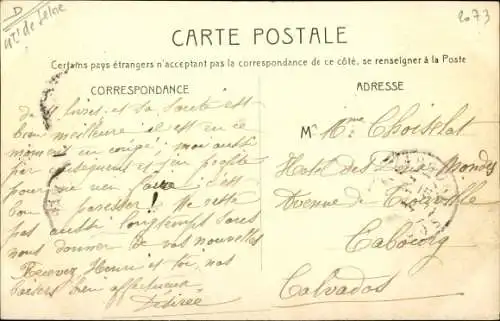 D
2073
CARTE POSTALE
Certains pays étrangers n'acceptant pas la correspondance de ce côté, se renseigner à la Poste
CORRESPONDANCE
ADRESSE
livres, et sa santé est
bien meilleure, il est en ce
moment en congé, moi aussi
par conséquent et j'en profite
pour ne rien faire c'est
bon paresser! Ne reste
pas aussi longtemps sans
nous donner de vos nouvelles
Recevez Henri et toi, nos
baisers bien affectueux
Désirée
M Mme Choiselat
Hotel des Deux Mondes
Avenue de Trouville
Cabourg
Calvados